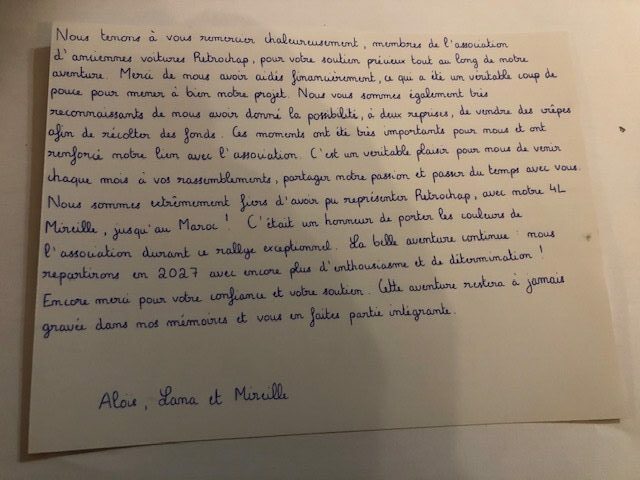 Nous tenons à vous remercier chaleureusement, membres de l'association
d'anciennes voitures Retrochap, pour votre soutien précieux tout au long de notre
aventure. Merci de nous avoir aidés financièrement, ce qui a été un véritable coup de
pouce pour mener à bien notre projet. Nous vous sommes également très
reconnaissants de nous avoir donné la possibilité, à deux reprises, de vendre des crêpes
afin de récolter des fonds. Ces moments ont été très importants pour nous et ont
renforcé notre lien avec l'association. C'est un veritable plaisir pour nous de venir
chaque mois à vos rassemblements, partager notre passion et passer du temps avec vous.
Nous sommes extrêmement fiers d'avoir pu représenter Retrochap, avec notre 4L
Mireille, jusqu'au Maroc ! C'était un honneur de porter les couleurs de
l'association durant ce rallye exceptionnel. La belle aventure continue : nous
repartirons en 2027 avec encore plus d'enthousiasme et de détermination !
Encore merci pour votre confiance et votre soutien. Cette aventure restera à jamais
gravée dans nos mémoires et vous en faites partie intégrante.
Alois, Lana et Mireille